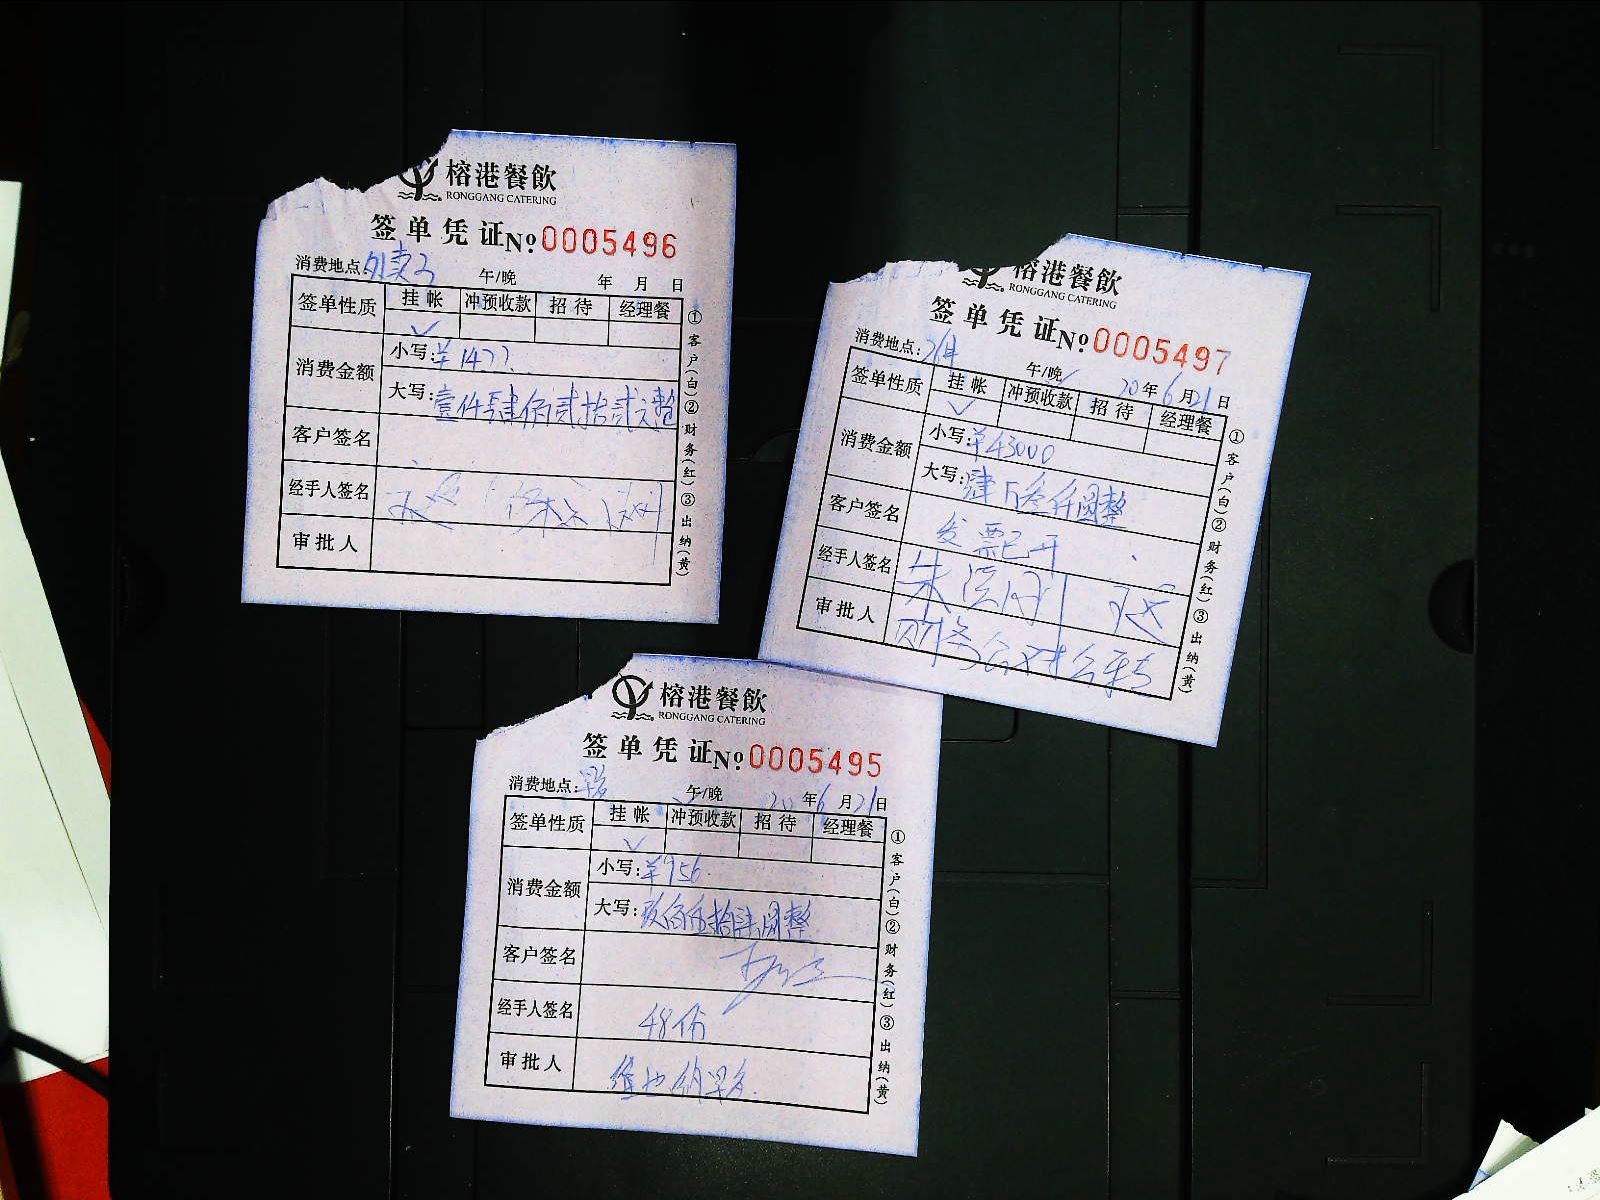 榕港餐飲
RONGGANG CATERING
签单凭证№0005496
消费地点 午/晚 年 月 日
签单性质 挂帐 冲预收款 招待 经理餐
✓
消费金额 小写:¥1422
大写:壹仟肆佰贰拾贰元整
客户签名
经手人签名
审批人
①客户(白)②财务(红)③出纳(黄)
榕港餐飲
RONGGANG CATERING
签单凭证№0005497
消费地点: 午/晚 20年6月21日
签单性质 挂帐 冲预收款 招待 经理餐
✓
消费金额 小写:¥43000
大写:肆万叁仟圆整
客户签名 发票已开
经手人签名
审批人
①客户(白)②财务(红)③出纳(黄)
榕港餐飲
RONGGANG CATERING
签单凭证№0005495
消费地点: 午/晚 20年6月21日
签单性质 挂帐 冲预收款 招待 经理餐
✓
消费金额 小写:¥956
大写:玖佰伍拾陆圆整
客户签名
经手人签名 48份
审批人
①客户(白)②财务(红)③出纳(黄)